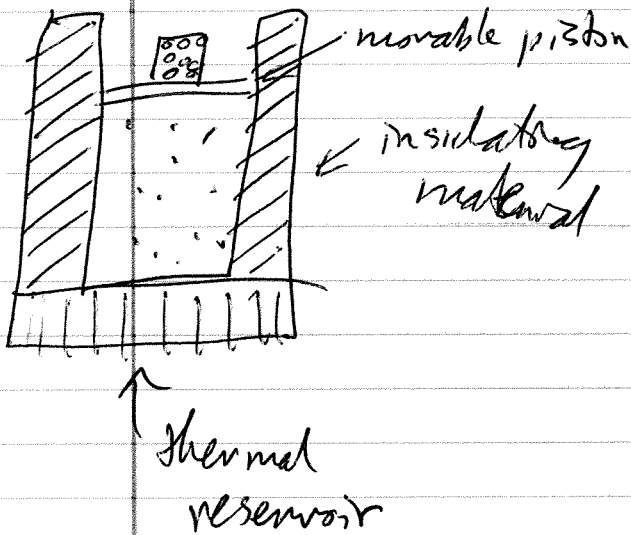 movable piston
insulating
material
thermal
reservoir